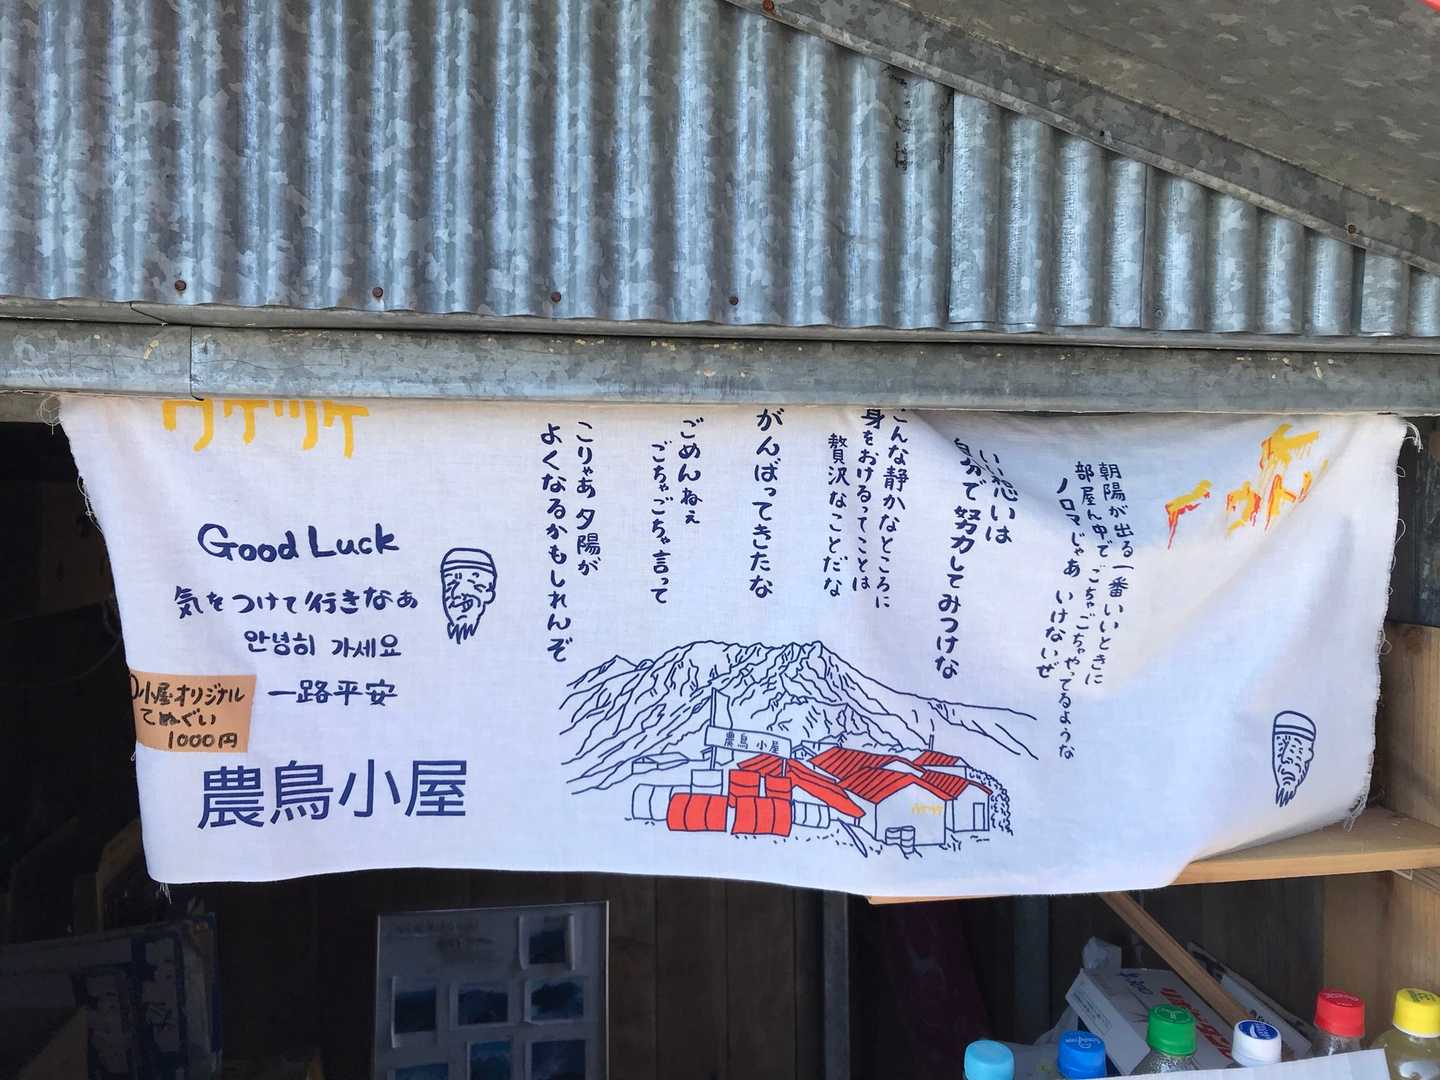 朝陽が出る一番いいときに
部屋ん中でごちゃごちゃやってるような
ノロマじゃあ いけないぜ
いい想いは
自分で努力してみつけな
こんな静かなところに
身をおけるってことは
贅沢なことだな
がんばってきたな
ごめんねぇ
ごちゃごちゃ言って
こりゃあ夕陽が
よくなるかもしれんぞ
ウケツケ
Good Luck
気をつけて行きなぁ
안녕히 가세요
一路平安
小屋オリジナル
てぬぐい
1000円
農鳥小屋
農鳥小屋
ウケツケ